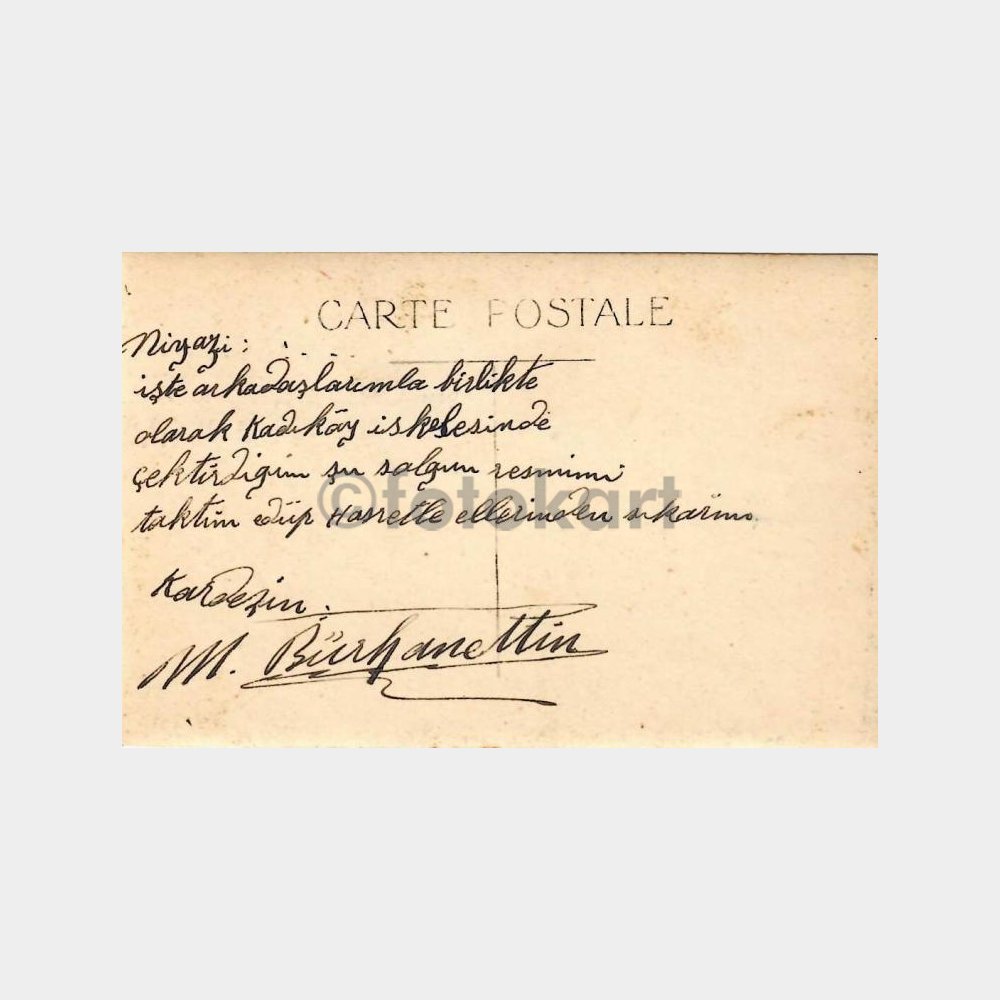 CARTE POSTALE
Niyazi:
işte arkadaşlarımla birlikte
olarak Kadıköy iskelesinde
çektirdiğim şu solgun resmimi
taktim edüp Hasretle ellerinden sıkarım.
Kardeşin.
M. Bürhanettin
©fotokart